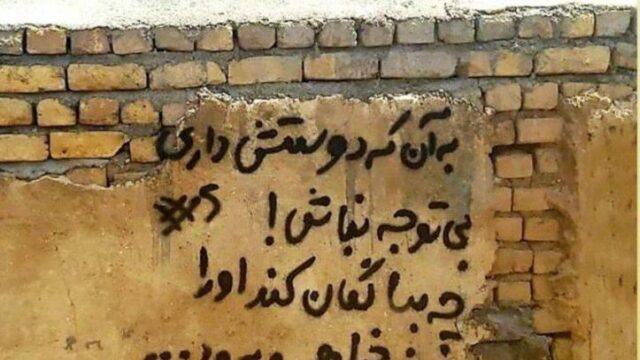 به آن که دوستش داری
بی توجه نباش!
#5
چه بسا گمان کند او را